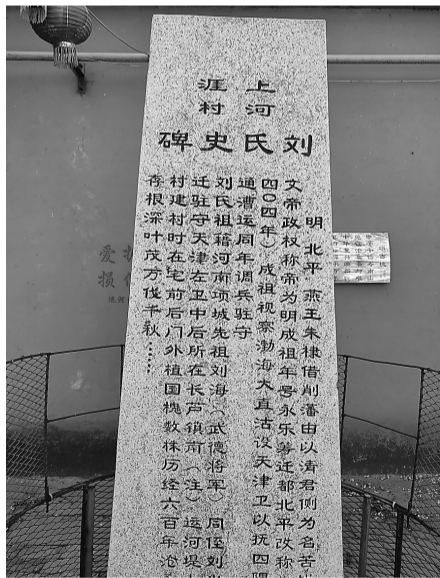 上河
涯村
刘氏史碑
明 北平 燕王朱棣借削潘由以清君侧为名苦
文帝政权称帝为明成祖年号永乐筹迁都北平改称
四〇四年）成祖视察渤海大直沽设天津卫以抗四隅
通漕运同年调兵驻守
刘氏祖籍河南项城先祖刘海（武德将军）同侄刘
迁驻守天津左卫中后所在长芦镇前（注）运河堤
村建村时在宅前后门外植国槐数株历经六百年沧
存根深叶茂万伐千秋……
爱
损